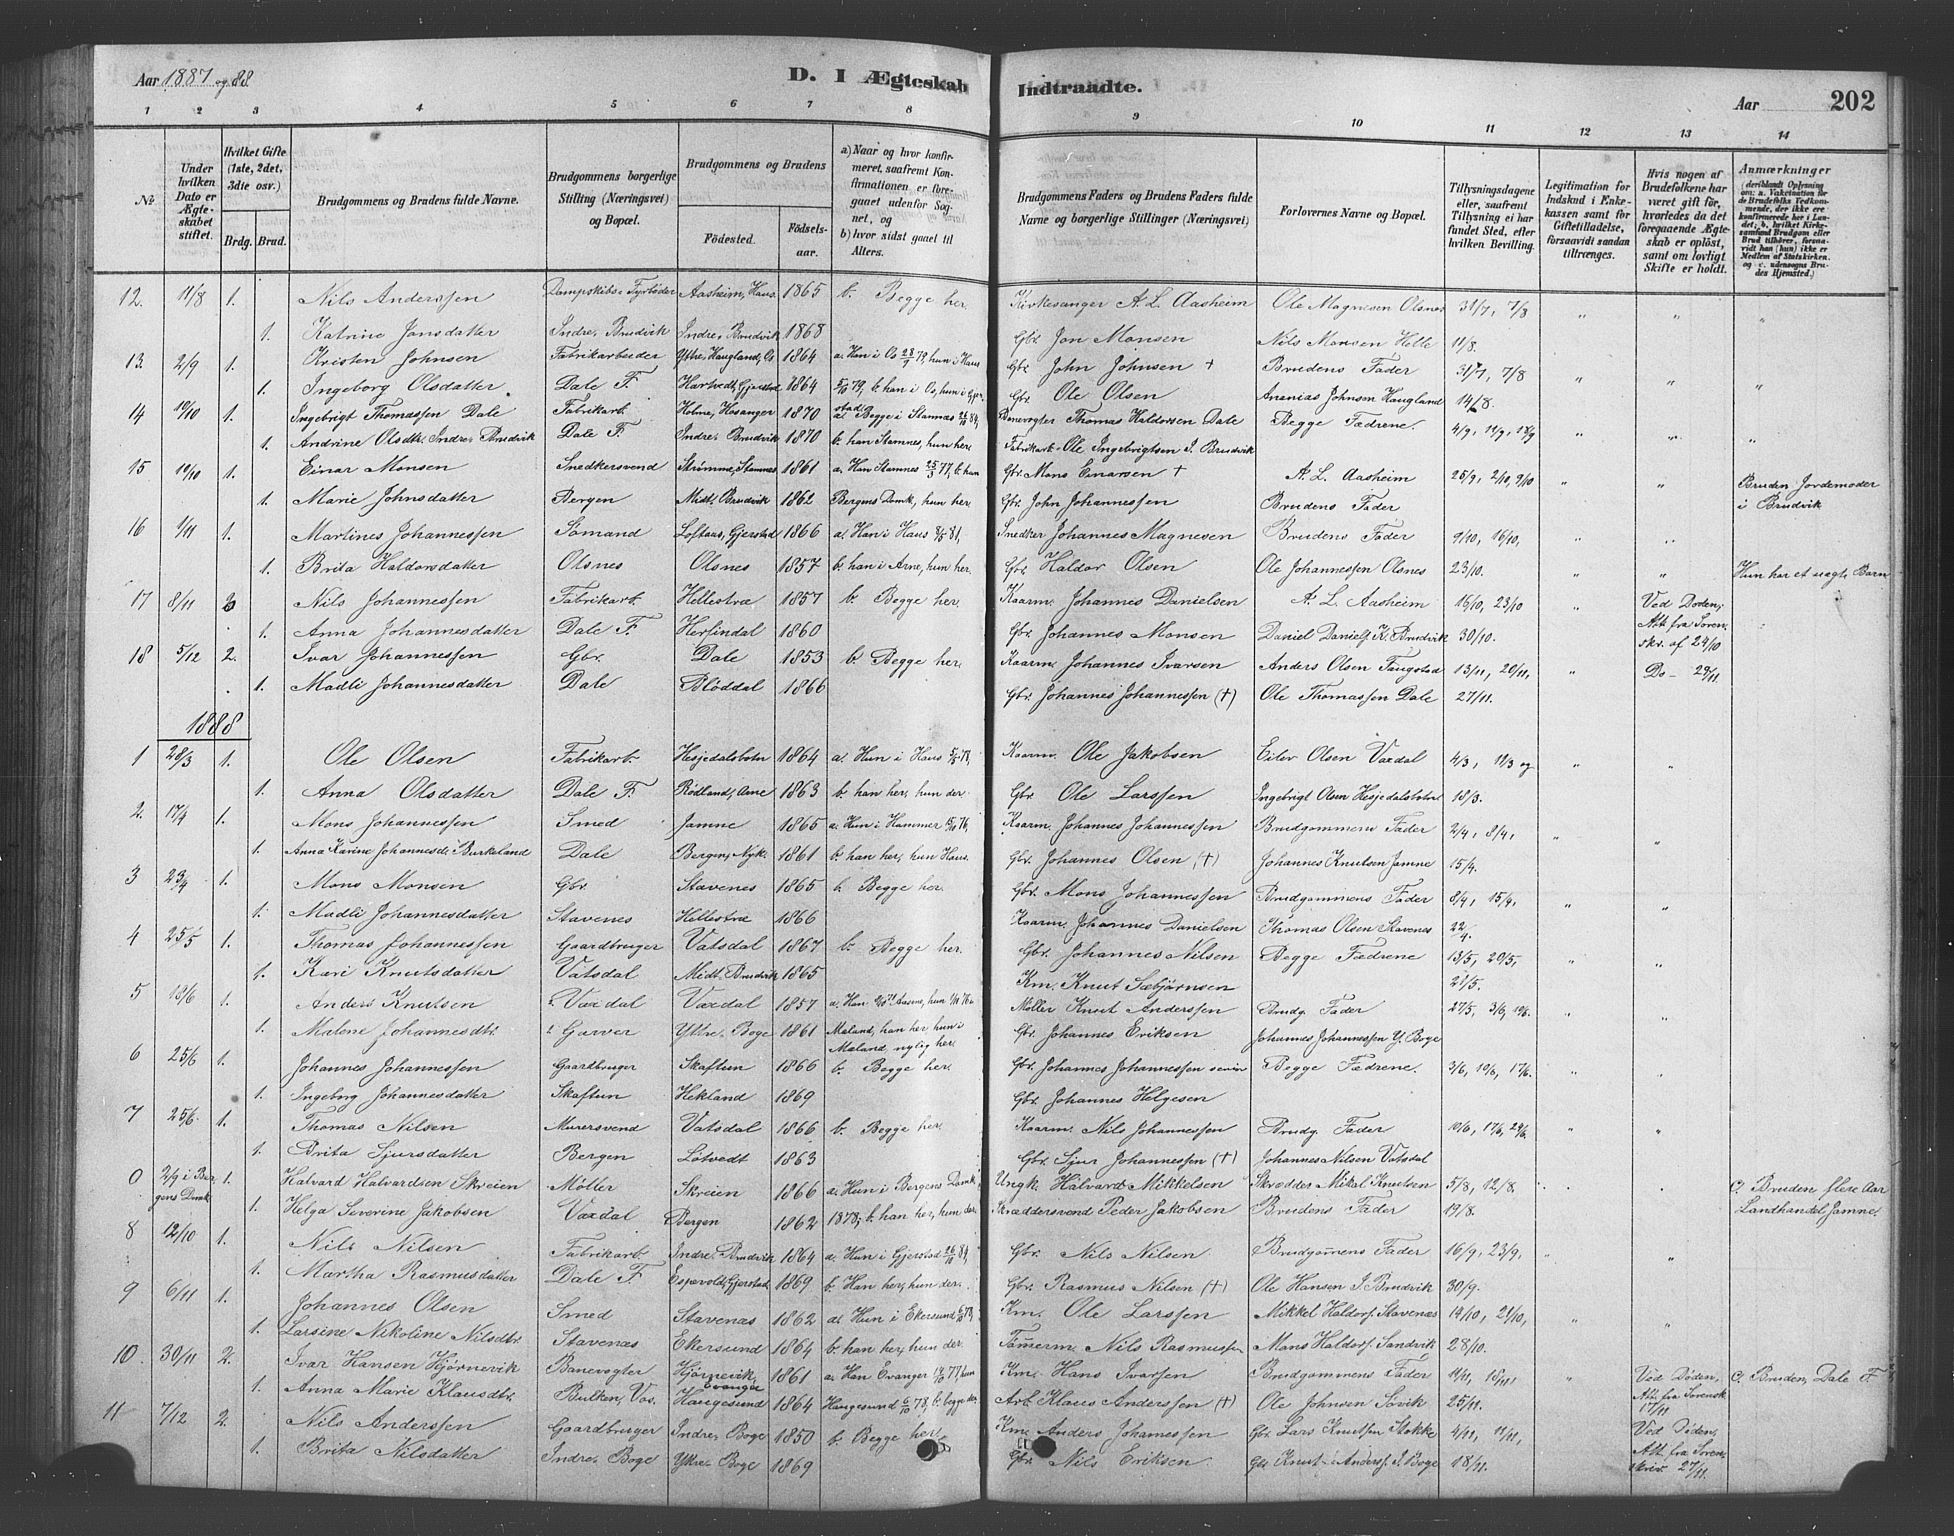 Aar 1887 og 88
D. I Ægteskab Indtraadte.
Aar 202
1 2 3 4 5 6 7 8 9 10 11 12 13 14
№
Under hvilken Dato er Ægteskabet stiftet.
Hvilket Gifte (1ste, 2det, 3dte osv.)
Brdg. Brud.
Brudgommens og Brudens fulde Navne.
Brudgommens borgerlige Stilling (Næringsvei) og Bopæl.
Brudgommens og Brudens
Födested. Födselsaar.
a) Naar og hvor konfirmeret, saafremt Konfirmationen er foregaaet udenfor Sognet, og
b) hvor sidst gaaet til Alters.
Brudgommens Faders og Brudens Faders fulde Navne og borgerlige Stillinger (Næringsvei)
Forlovernes Navne og Bopæl.
Tillysningsdagene eller, saafremt Tillysning ei har fundet Sted, efter hvilken Bevilling.
Legitimation for Indskud i Enkekassen samt for Giftetilladelse, forsaavidt saadan tiltrænges.
Hvis nogen af Brudefolkene har været gift för, hvorledes da det foregaaende Ægteskab er oplöst, samt om lovligt Skifte er holdt.
Anmærkninger
12. 11/8 1. Nils Anderssen Dampskibs-Fyrbøder Aasheim, Haus. 1865 b. Begge her. Kirkesanger A. L. Aasheim Ole Magnesen Olsnes 31/7, 7/8 " " "
1. Katrine Jonsdatter Indre-Brudvik Indre-Brudvik 1868 Gbr. Jon Monsen Nils Monsen Helle 11/8.
13. 2/9 1. Kristen Johnsen Fabrikarbeider Ytre-Haugland, Os 1864 a. Han i Os 28/9 79, hun i Haus Gbr. John Johnsen + Brudens Fader 31/7, 7/8 " " "
1. Ingeborg Olsdatter Dale F. Hartvedt, Gjerstad 1864 5/10 79, b. han i Os, hun i Gjerstad Gbr. Ole Olsen Ananias Johnsen Haugland 14/8.
14 19/10 1. Ingebrigt Thomassen Dale Fabrikarb. Holme, Hosanger 1870 a. Begge i Stamnæs 26/10 84, Banevogter Thomas Haldorsen Dale Begge Fædrene. 4/9, 11/9, 18/9 " " "
1. Andrine Olsdtr. Indre-Brudvik Dale F. Indre-Brudvik 1870 b. han Stamnes, hun her. Fabrikarb. Ole Ingebrigtsen I. Brudvik
15 19/10 1. Einar Monsen Snedkersvend Strømme, Stamnes 1861 a. Han Stamnes 25/3 77, b. hun Gbr. Mons Einarsen + A. L. Aasheim 25/9, 2/10, 9/10 " " Bruden Jordemoder
1. Marie Johnsdatter Bergen Midt-Brudvik 1862 Bergens Domk, hun her. Gbr. John Johannessen Brudens Fader i Brudvik
16 1/11 1. Martines Johannessen Sømand Loftaas, Gjerstad 1866 a. Han i Haus 8/5 81, Snedker Johannes Magnesen Brudens Fader 9/10, 16/10, " "
1. Brita Haldorsdatter Olsnes Olsnes 1857 b. han i Arne, hun her. Gbr. Haldor Olsen Ole Johannessen Olsnes 23/10. " " Hun har et uægte Barn
17 8/11 2. Nils Johannessen Fabrikarb. Hellestræ 1857 b. Begge her. Kaarm. Johannes Danielsen A. L. Aasheim 16/10, 23/10 " Ved Døden;
1. Anna Johannesdatter Dale F. Herfindal 1860 Gbr. Johannes Monsen Daniel Daniels. K. Brudvik 30/10. Att. fra Sorenskr. af 24/10
18 5/12 2. Ivar Johannessen Gbr. Dale 1853 b. Begge her. Kaarm. Johannes Ivarsen Anders Olsen Faugstad 13/11, 20/11, " Do - 23/11
1. Madli Johannesdatter Dale Bløddal 1866 Gbr. Johannes Johannessen (+) Ole Thomassen Dale 27/11.
1888
1 28/3 1. Ole Olsen Fabrikarb. Hesjedalsbotn 1864 a. Hun i Haus 5/5 78, Kaarm. Ole Jakobsen Eilev Olsen Vaxdal 4/3, 11/3 og " "
1. Anna Olsdatter Dale F. Rødland, Arne 1863 b. han her, hun der. Gbr. Ole Larssen Ingebrigt Olsen Hesjedalsbotn 18/3.
2. 17/4 1. Mons Johannessen Smed Jamne 1865 a. Hun i Hammer 15/10 76, Kaarm. Johannes Johannessen Brudgommens Fader 2/4, 8/4, "
1. Anna Karine Johannesdtr. Burkeland Dale Bergen, Nyk. 1861 b. han her, hun Haus. Gbr. Johannes Olsen (+) Johannes Knutsen Jamne 15/4.
3 23/4 1. Mons Monsen Gbr. Stavenes 1865 b. Begge her. Gbr. Mons Johannessen Brudgommens Fader 8/4, 15/4, " "
1. Madli Johannesdatter Stavenes Hellestræ 1866 Kaarm. Johannes Danielsen Thomas Olsen Stavenes 22/4.
4 25/5 1. Thomas Johannessen Gaardbruger Vatsdal 1867 b. Begge her. Gbr. Johannes Nilsen Begge Fædrene 13/5, 20/5, " "
1. Kari Knutsdatter Vatsdal Midt-Brudvik 1865 Km. Knut Sæbjørnsen 21/5.
5 18/6 1. Anders Knutsen Vaxdal Vaxdal 1857 Møller Knut Anderssen Brudg. Fader 27/5, 3/6, 10/6. " "
1. Malene Johannesdtr. Garver Ytre-Boge 1861 Mæland, han her, hun i Mæland, nylig her. Gbr. Johannes Eriksen Johannes Johannessen Y. Boge
6 25/6 1. Johannes Johannessen Gaardbruger Skaftun 1866 b. Begge her. Gbr. Johannes Johannessen senior Begge Fædrene. 3/6, 10/6, 17/6. " "
1. Ingeborg Johannesdatter Skaftun Hekland 1869 Gbr. Johannes Helgesen
7 25/6. 1. Thomas Nilsen Murersvend Vatsdal 1866 b. Begge her. Kaarm. Nils Johannessen Brudg. Fader 10/6, 17/6, 24/6. " "
1. Brita Sjursdatter Bergen Løtvedt 1863 Gbr. Sjur Johannessen (+) Johannes Nilsen Vatsdal
0 2/9 i Bergens Domk. 1. Halvard Halvardsen Skreien Møller Skreien 1866 a. Hun i Bergens Domk. Ungk. Halvard Mikkelsen Skrædder Mikal Knutsen 5/8, 12/8. c. Bruden flere Aar
1. Helga Severine Jakobsen Vaxdal Bergen 1862 1878, b. han her, hun der. Skræddersvend Peder Jakobsen Brudens Fader 19/8. Landhandel Jamne.
8 12/10 1. Nils Nilsen Fabrikarb. Indre-Brudvik 1864 a. Hun i Gjerstad 26/10 84. Gbr. Nils Nilsen Brudgommens Fader 16/9, 23/9, " "
1. Martha Rasmusdatter Dale F. Espevold, Gjerstad 1869 b. Han her, hun der. Gbr. Rasmus Nilsen (+) Ole Hansen I. Brudvik 30/9.
9 6/11 1. Johannes Olsen Smed Stavenæs 1862 a. Hun i Ekersund 6/10 78, Km. Ole Larssen Mikkel Haldors. Stavenæs 14/10, 21/10, " "
1. Larsine Nikoline Nilsdtr. Stavenæs Ekersund 1864 b. han her, hun der. Tømmerm. Nils Rasmussen Mons Haldors. Sandvik 28/10.
10. 30/11 2. Ivar Hansen Hjørnevik Banevogter Hjørnevik, Evanger 1861 a. Han Evanger 14/10 77, hun Km. Hans Ivarsen Brudgommens Fader 11/11, 18/11, " Ved Døden, c. Bruden, Dale F
1. Anna Marie Klausdtr. Bulken, Vos. Haugesund 1864 Haugesund 6/10 78, b. begge her. Arb. Klaus Anderssen (+) Ole Johnsen Sørvik 25/11. Att. fra Sorensk. 17/11
11 7/12 2. Nils Anderssen Gaardbruger Indre-Boge 1850 b. Begge her. Km. Anders Johannessen Gbr. Lars Knutsen Stokke 4/11, 11/11, Ved Døden,
1. Brita Nilsdatter Indre-Boge Ytre-Boge 1869 Gbr. Nils Eriksen. Gbr. Knut Anders. I. Boge 18/11. Att. fra Sorenskriv. 27/11.